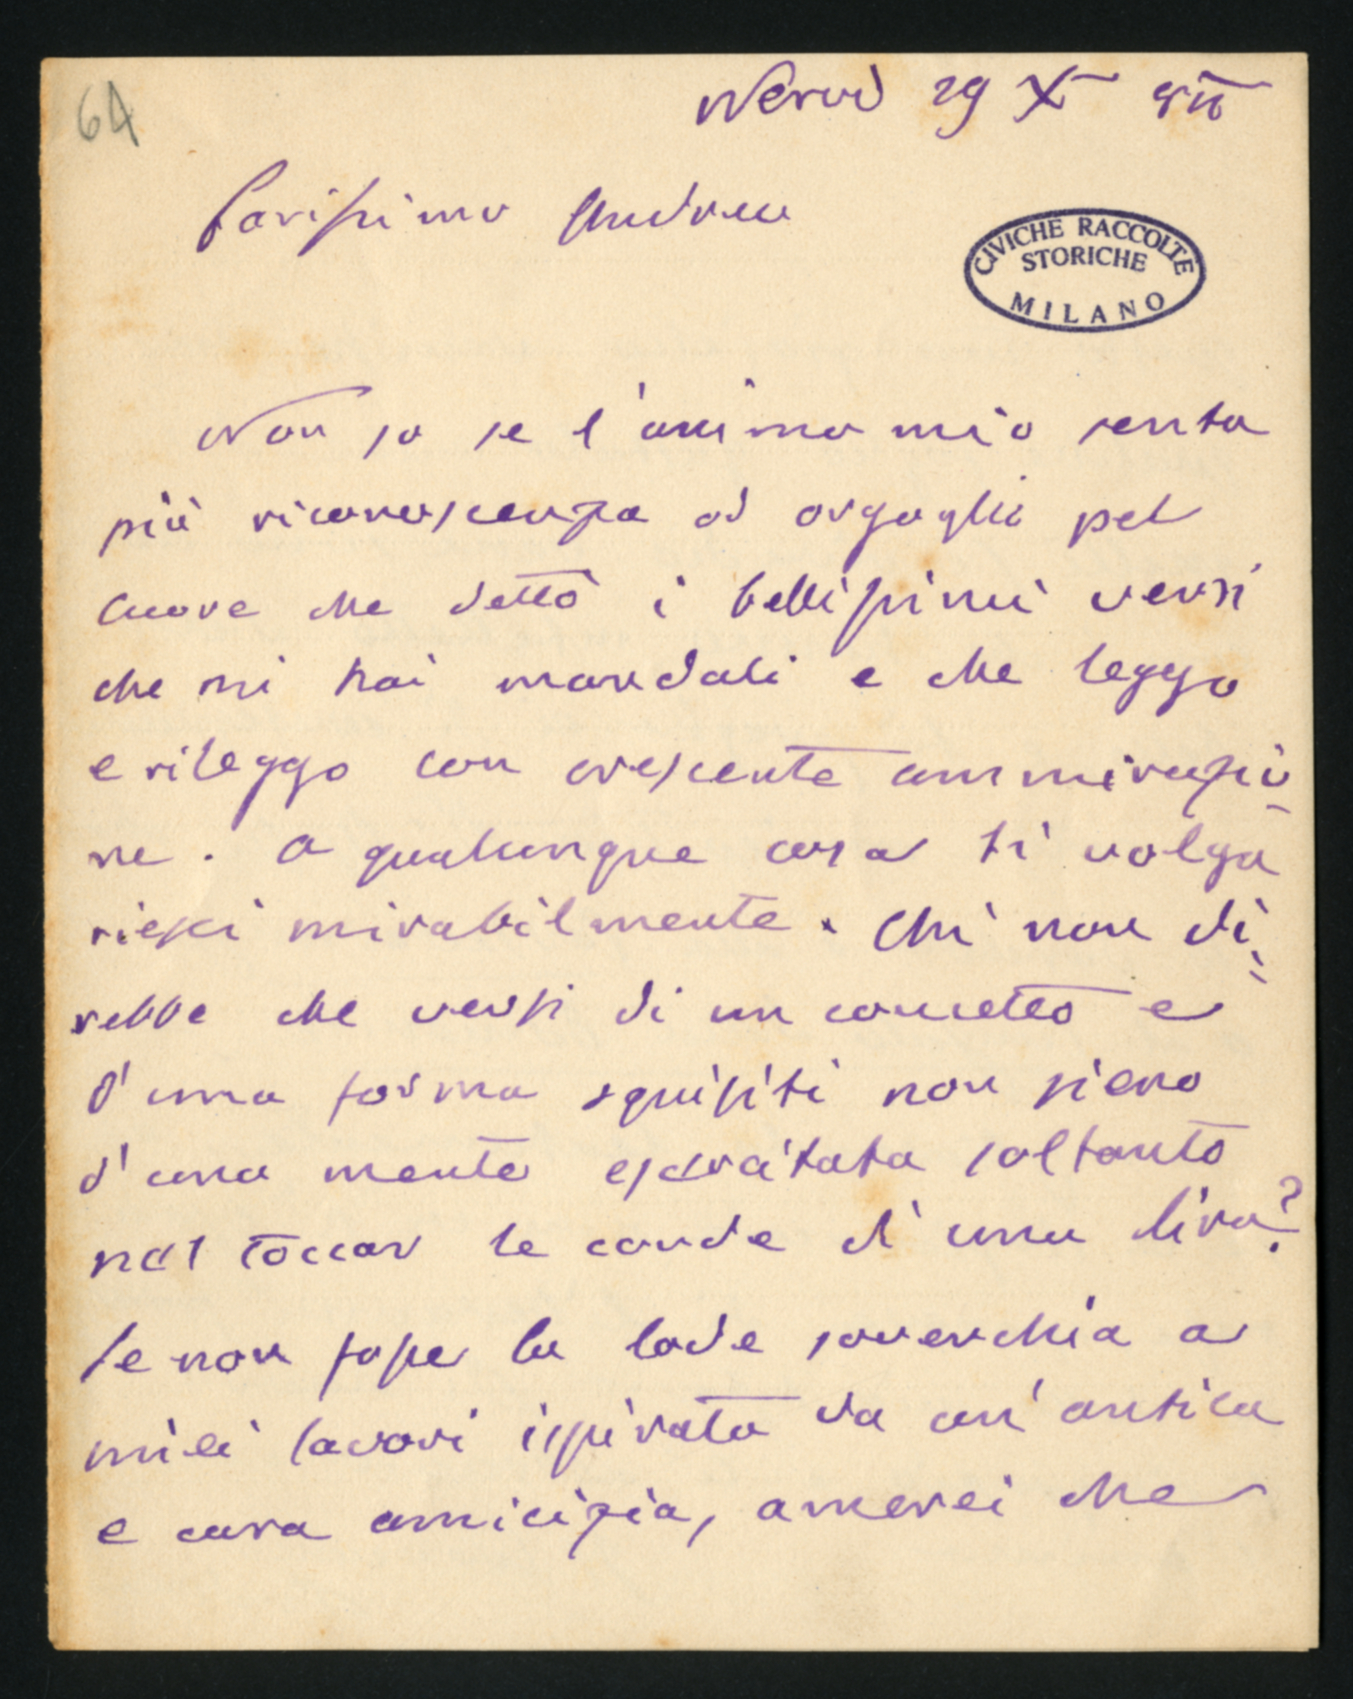 64
Nervi 29 X
Carissimo Andrea
CIVICHE RACCOLTE
STORICHE
MILANO
Non so se l'animo mio senta
più riconoscenza od orgoglio pel
cuore che dettò i bellissimi versi
che mi hai mandati e che leggo
e rileggo con crescente ammirazio
ne. A qualunque cosa ti volga
riesci mirabilmente. Chi non di
rebbe che versi di un concetto e
d'una forma squisiti non sieno
d'una mente esercitata soltanto
nel toccar le corde di una lira?
Se non fosse la lode soverchia a
miei lavori ispirata da un'antica
e cara amicizia, amerei che